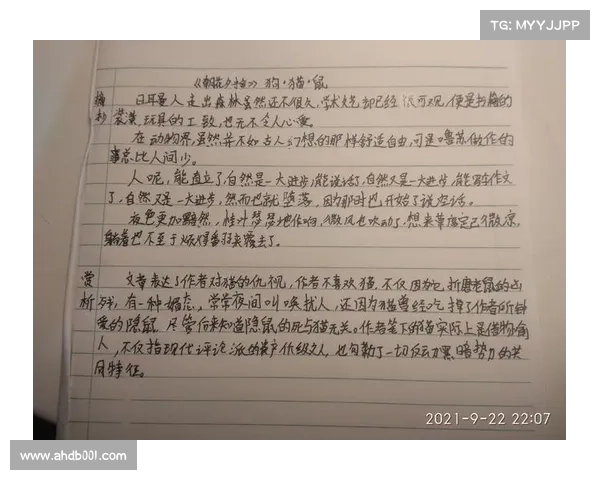 TG: MYYJJPP
《朝花夕拾》狗·猫·鼠
摘 日耳曼人走出森林虽然还不很久,学术文艺却已经很可观,便是书籍的
抄 装潢,玩具的工致,也无不令人心爱。
在动物界,虽然并不如古人幻想的那样舒适自由,可是噜苏做作的
事总比人间少。
人呢,能直立了,自然是一大进步;能说话了,自然又是一大进步;能写字作文
了,自然又是一大进步,然而也就堕落,因为那时也开始了说空话。
夜色更加黯然,桂叶瑟瑟地作响,微风也吹动了,想来草席定已微凉,
躺着也不至于烦得翻来覆去了。
赏 文章表达了作者对猫的仇视,作者不喜欢猫,不仅因为它折磨老鼠的凶
析 残,有一种媚态,常常夜间叫唤扰人,还因为猫曾经吃掉了作者所钟
爱的隐鼠,尽管后来知道隐鼠的死与猫无关。作者笔下的猫实际上是借物喻
人,不仅指现代评论派的资产阶级文人,也勾勒了一切反动黑暗势力的共
同特征。
2021-9-22 22:07
www.ahdb001.com